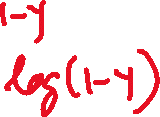 1-y
log(1-y)